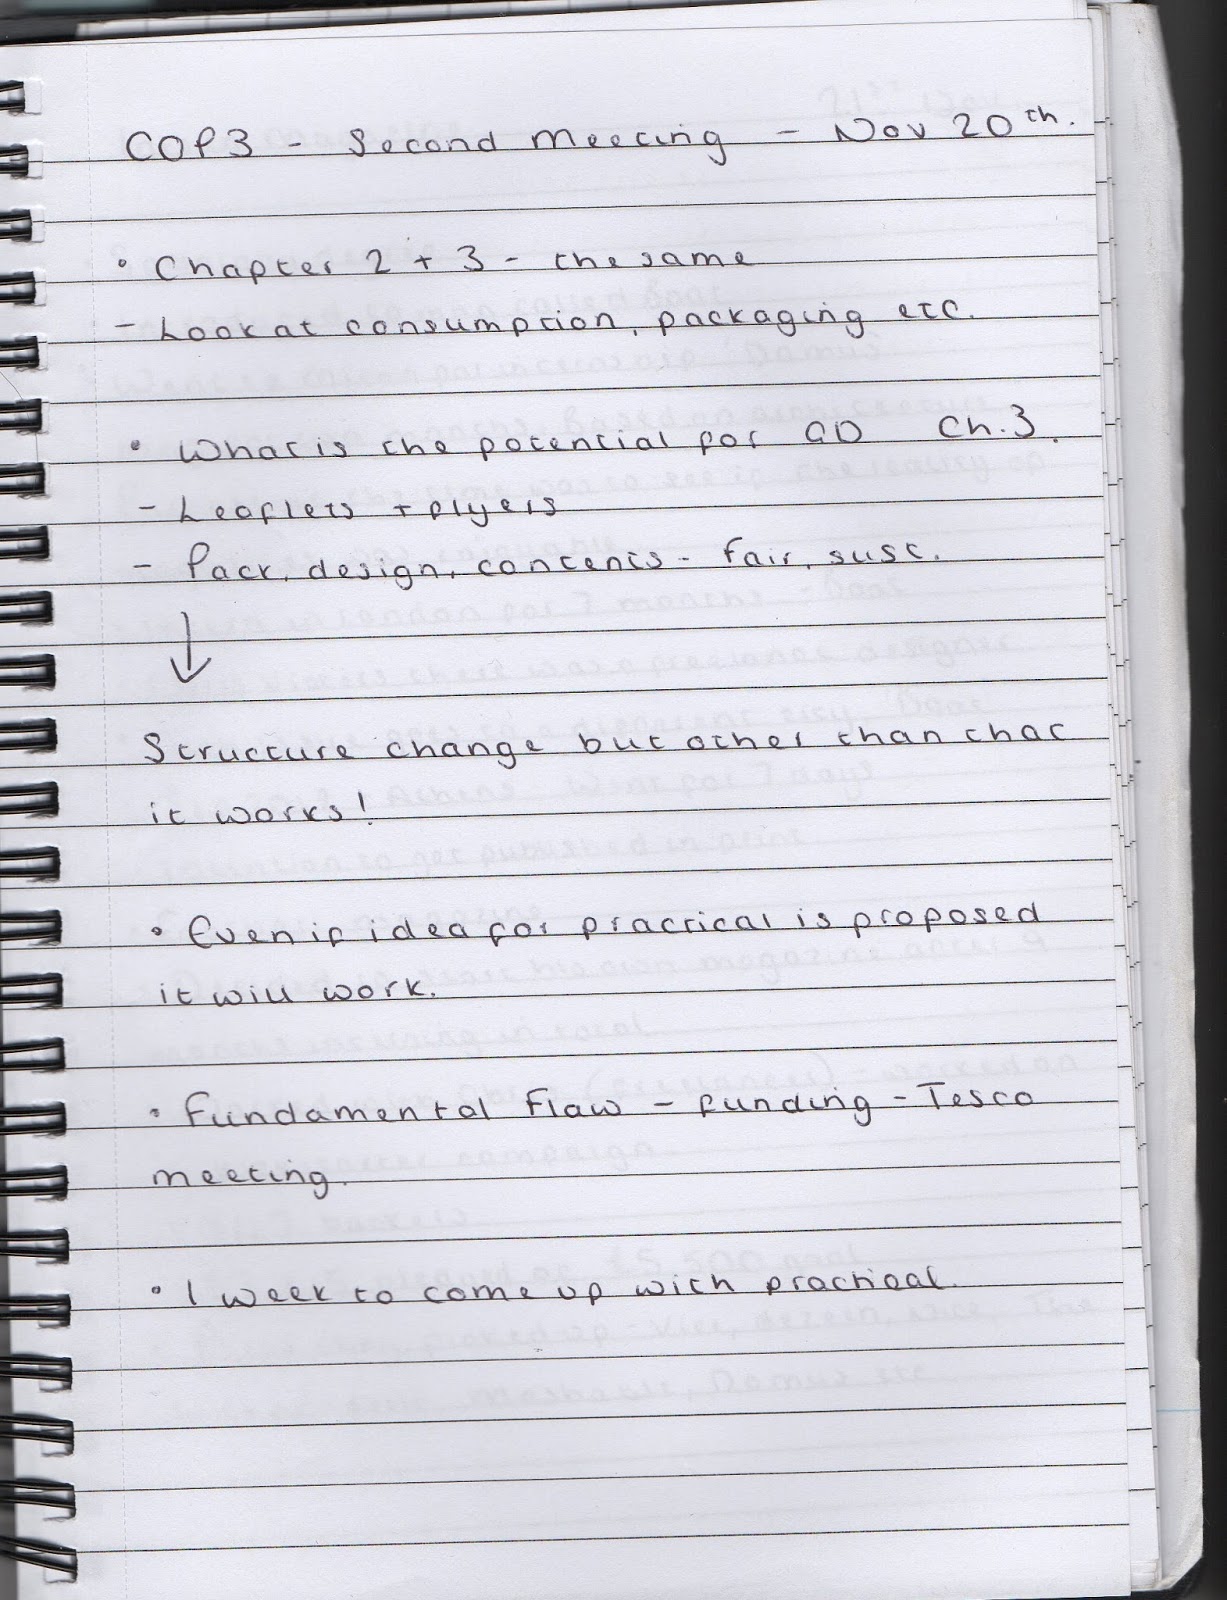 COP3 - Second meeting - Nov 20th.
• Chapter 2 + 3 - the same
- Look at consumption, packaging etc.
• What is the potential for GD Ch.3.
- Leaflets + flyers
- Pack, design, contents - Fair, sust.
↓
Structure change but other than that
it works!
• Even if idea for practical is proposed
it will work.
• Fundamental Flaw - funding - Tesco
meeting.
• 1 week to come up with practical.